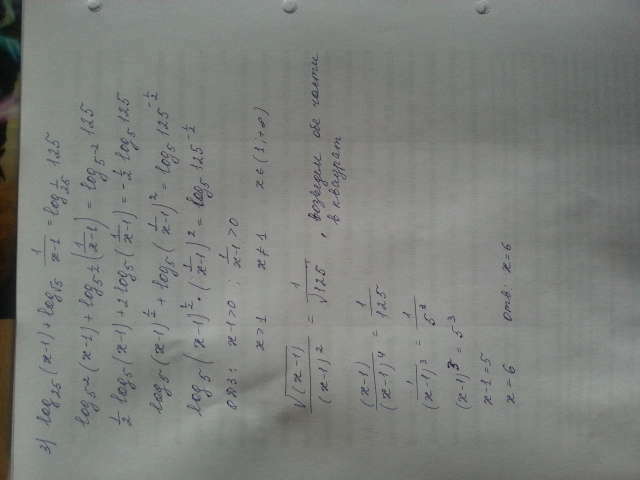 3) log₂₅(x-1) + log√5 1/(x-1) = log 1/25 125
log₅2(x-1) + log₅½(1/(x-1)) = log₅-2 125
1/2 log₅(x-1) + 2log₅(1/(x-1)) = -1/2 log₅125
log₅(x-1)^½ + log₅(1/(x-1))² = log₅125^-½
log₅(x-1)^½ · (1/(x-1))² = log₅125^-½
ОДЗ: x-1>0 ; 1/(x-1)>0
x>1 x≠1 x∈(1,+∞)
√(x-1)/(x-1)² = 1/√125 , возведем обе части
в квадрат
(x-1)/(x-1)⁴ = 1/125
1/(x-1)³ = 1/5³
(x-1)³ = 5³
x-1=5
x=6 отв: x=6